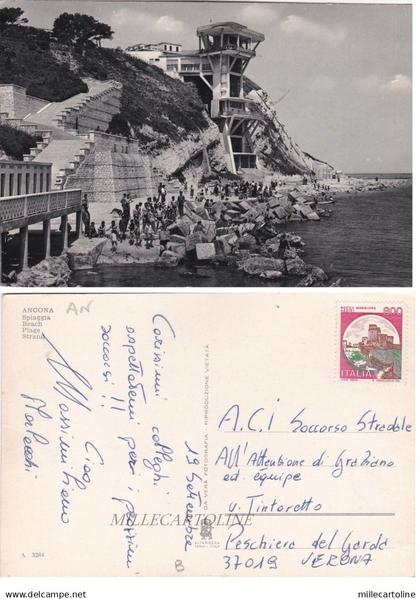 ANCONA
Spiaggia
Beach
Plage
Strand
AN
Carissimi colleghi
aspettatemi per i prossimi
soccorsi!!
Ciao
Massimiliano
19 Settembre
DA VERA FOTOGRAFIA - RIPRODUZIONE VIETATA
800
ITALIA
A.C.I Soccorso Stradale
All'Attenzione di Graziano
ed. equipe
v. Tintoretto
Peschiera del Garda
37019 VERONA
MILLECARTOLINE
B
A 3284
www.millecartoline.com